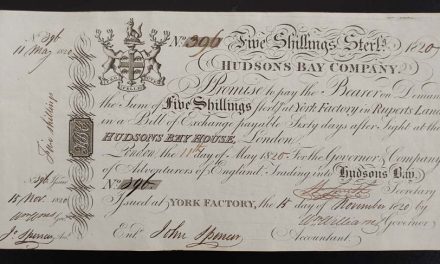 No. 396
11 May 1820
Five Shillings
No. 396
15 Nov. 1820
No. 396 Five Shillings Sterlg. 1820
HUDSONS BAY COMPANY.
Promise to pay the Bearer on Demand
the Sum of Five Shillings Sterlg at York Factory in Ruperts Land
in a Bill of Exchange payable Sixty days after Sight at the
HUDSONS BAY HOUSE, London
London, the 11th day of May 1820 For the Governor & Company
of Adventurers of England Trading into Hudsons Bay
No. 396
Secretary
Issued at YORK FACTORY, the 15 day of November 1820 by
Wm Williams Governor
Entd. John Spencer Accountant